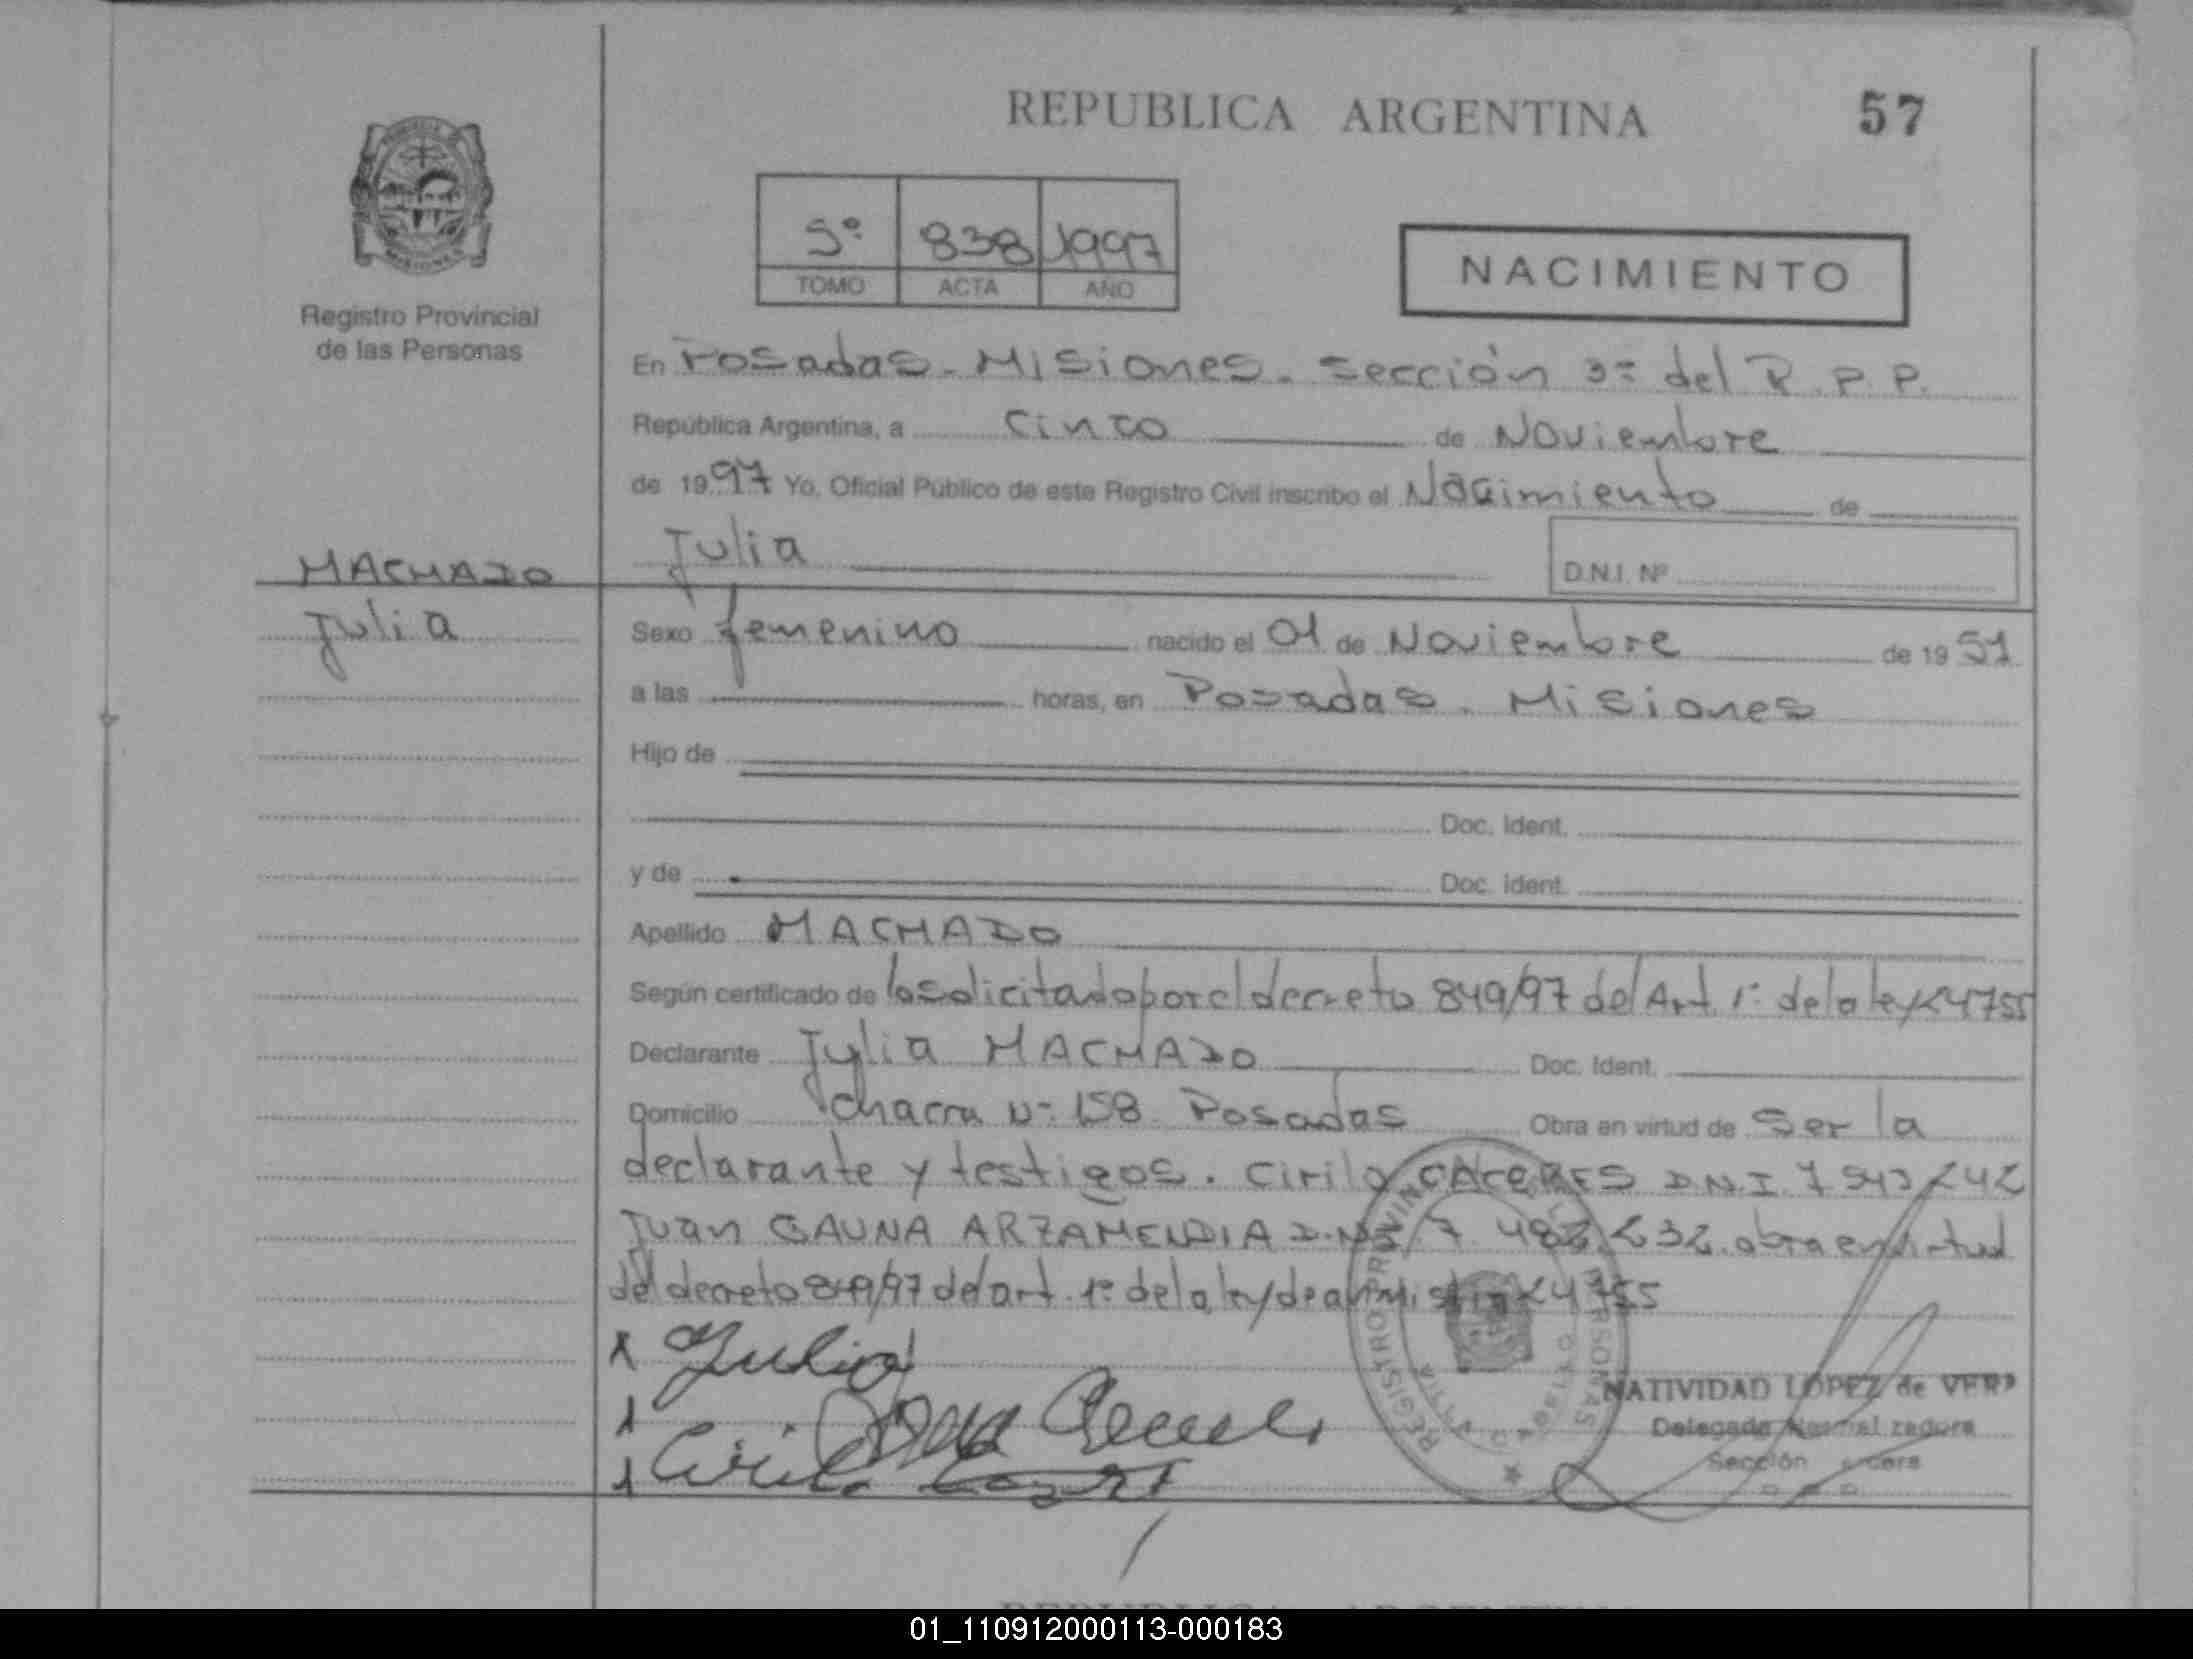 REPUBLICA ARGENTINA
57
5º 838 1997
TOMO ACTA AÑO
NACIMIENTO
MISIONES
Registro Provincial
de las Personas
En Posadas - Misiones. Sección 3ª del R.P.P.
República Argentina, a cinco de Noviembre
de 1997 Yo, Oficial Público de este Registro Civil inscribo el Nacimiento de
Julia
D.N.I. Nº
MACHADO
Julia
Sexo femenino nacido el 01 de Noviembre de 1951
a las horas, en Posadas. Misiones
Hijo de
Doc. Ident.
y de Doc. Ident.
Apellido MACHADO
Según certificado de lo solicitado por el decreto 849/97 del Art. 1º de la ley 24755
Declarante Julia MACHADO Doc. Ident.
Domicilio chacra Nº 158 Posadas Obra en virtud de Ser la
declarante y testigos. Cirilo CACERES D.N.I. 7 543 242
Juan GAUNA ARZAMENDIA D.N.I. 7.482.232. obra en virtud
del decreto 849/97 del art. 1º de la ley de amnistia 24755
Julia
Cirilo
REGISTRO PROVINCIAL PERSONAS
NATIVIDAD LOPEZ de VERA
Delegada Normalizadora
Sección
REPUBLICA ARGENTINA
01_110912000113-000183